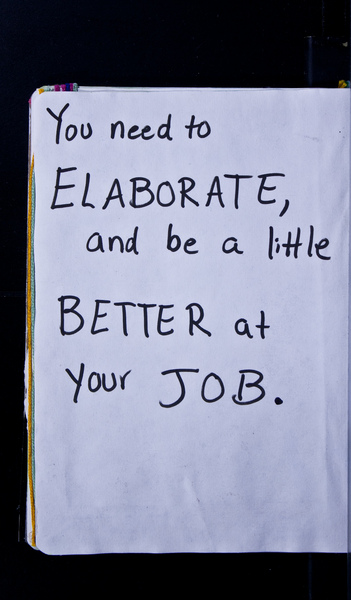 You need to
ELABORATE,
and be a little
BETTER at
your JOB.